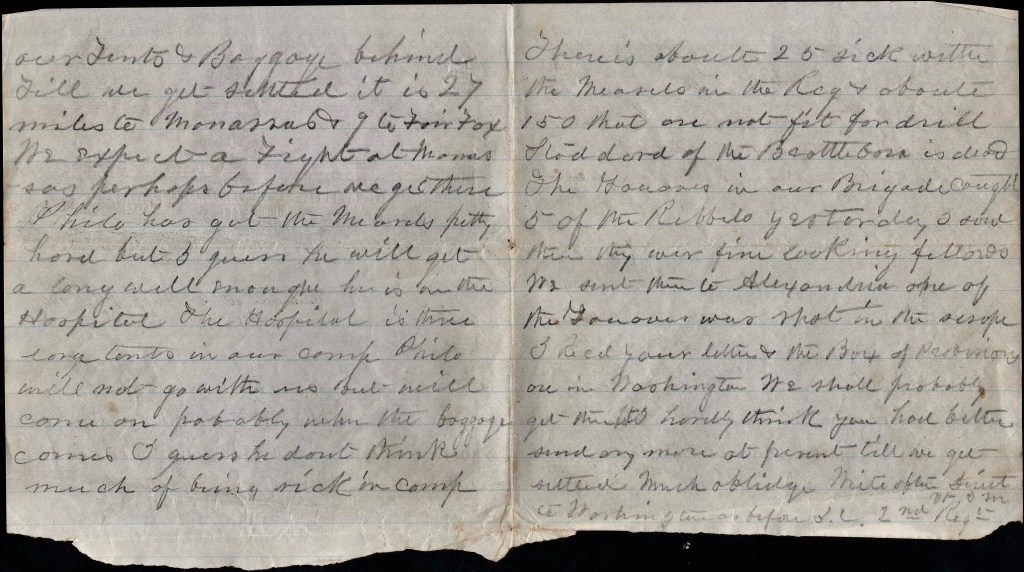 our Tents & Baggage behind
Till we get settled it is 27
miles to Monassas & 9 to Fair Fax
We expect a Fight at Monas
sas perhaps before we get there
Philo has got the Measels pretty
hard but I guess he will get
a long well enough he is in the
Hospitel The Hospitel is three
large tents in our camp Philo
will not go with us but will
come on probably when the baggage
comes I guess he dont think
much of being sick in camp
There is aboute 25 sick withe
the Measels in the Reg & aboute
150 that are not fit for drill
Stoddard of the Brattleboro is dead
The Zouaves in our Brigade caught
5 of the Rebbels yesterday I saw
them they wer fine looking fellows
We sent them to Alexandria one of
the Zouaves was shot in the
I Recd your letter & the Box of Provisions
are in Washington We shall probably
get them I hardly think you had better
send any more at present till we get
settled Much oblidge Write often Direct
to Washington as before D.C. 2nd Vt Regt